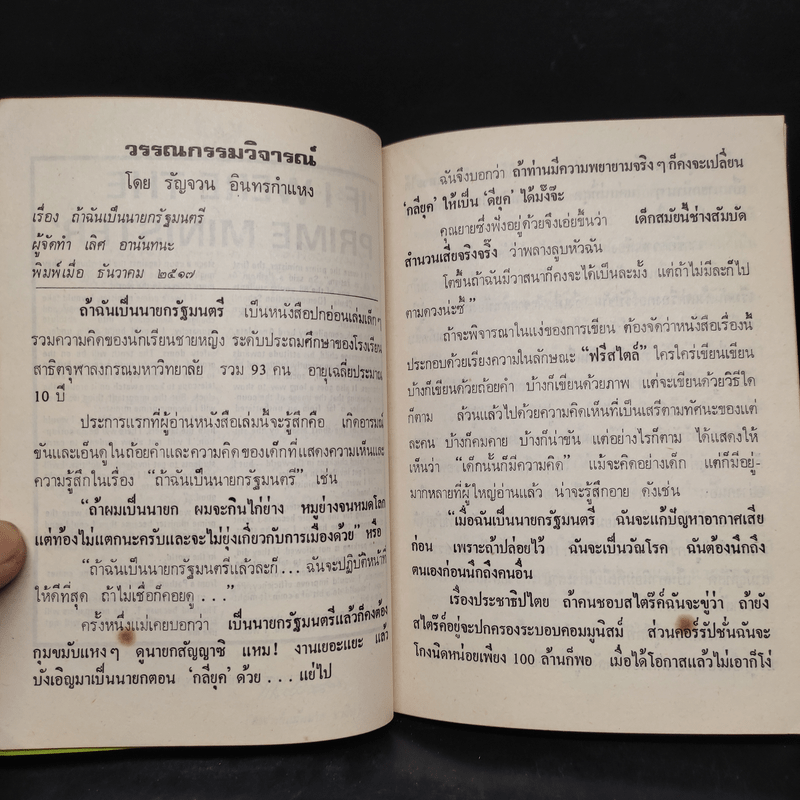 วรรณกรรมวิจารณ์
โดย รัญจวน อินทรกำแหง
เรื่อง ถ้าฉันเป็นนายกรัฐมนตรี
ผู้จัดทำ เลิศ อานันทนะ
พิมพ์เมื่อ ธันวาคม ๒๕๑๗
ถ้าฉันเป็นนายกรัฐมนตรี เป็นหนังสือปกอ่อนเล่มเล็กๆ
รวมความคิดของนักเรียนชายหญิง ระดับประถมศึกษาของโรงเรียน
สาธิตจุฬาลงกรณมหาวิทยาลัย รวม 93 คน อายุเฉลี่ยประมาณ
10 ปี
ประการแรกที่ผู้อ่านหนังสือเล่มนี้จะรู้สึกคือ เกิดอารมณ์
ขันและเอ็นดูในถ้อยคำและความคิดของเด็กที่แสดงความเห็นและ
ความรู้สึกในเรื่อง “ถ้าฉันเป็นนายกรัฐมนตรี” เช่น
“ถ้าผมเป็นนายก ผมจะกินไก่ย่าง หมูย่างจนหมดโลก
แต่ท้องไม่แตกนะครับและจะไม่ยุ่งเกี่ยวกับการเมืองด้วย” หรือ
“ถ้าฉันเป็นนายกรัฐมนตรีแล้วละก็ . . . ฉันจะปฏิบัติหน้าที่
ให้ดีที่สุด ถ้าไม่เชื่อก็คอยดู . . .”
ครั้งหนึ่งแม่เคยบอกว่า เป็นนายกรัฐมนตรีแล้วก็คงต้อง
กุมขมับแหงๆ ดูนายกสัญญาซิ แหม! งานเยอะแยะ แล้ว
บังเอิญมาเป็นนายกตอน ‘กลียุค’ ด้วย . . . แย่ไป
ฉันจึงบอกว่า ถ้าท่านมีความพยายามจริงๆ ก็คงจะเปลี่ยน
‘กลียุค’ ให้เป็น ‘ดียุค’ ได้มั้งจ๊ะ
คุณยายซึ่งฟังอยู่ด้วยจึงเอ่ยขึ้นว่า เด็กสมัยนี้ช่างสัมบัด
สำนวนเสียจริงจริ๊ง ว่าพลางลูบหัวฉัน
โตขึ้นถ้าฉันมีวาสนาก็คงจะได้เป็นละมั้ง แต่ถ้าไม่มีละก็ไป
ตามดวงน่ะซี้”
ถ้าจะพิจารณาในแง่ของการเขียน ต้องจัดว่าหนังสือเรื่องนี้
ประกอบด้วยเรียงความในลักษณะ “ฟรีสไตล์” ใครใคร่เขียนเขียน
บ้างก็เขียนด้วยถ้อยคำ บ้างก็เขียนด้วยภาพ แต่จะเขียนด้วยวิธีใด
ก็ตาม ล้วนแล้วไปด้วยความคิดเห็นที่เป็นเสรีตามทัศนะของแต่
ละคน บ้างก็คมคาย บ้างก็น่าขัน แต่อย่างไรก็ตาม ได้แสดงให้
เห็นว่า “เด็กนั้นก็มีความคิด” แม้จะคิดอย่างเด็ก แต่ก็มีอยู่-
มากหลายที่ผู้ใหญ่อ่านแล้ว น่าจะรู้สึกอาย ดังเช่น
“เมื่อฉันเป็นนายกรัฐมนตรี ฉันจะแก้ปัญหาอากาศเสีย
ก่อน เพราะถ้าปล่อยไว้ ฉันจะเป็นวัณโรค ฉันต้องนึกถึง
ตนเองก่อนนึกถึงคนอื่น
เรื่องประชาธิปไตย ถ้าคนชอบสไตร๊ค์ฉันจะขู่ว่า ถ้ายัง
สไตร๊ค์อยู่จะปกครองระบอบคอมมูนิสม์ ส่วนคอร์รัปชั่นฉันจะ
โกงนิดหน่อยเพียง 100 ล้านก็พอ เมื่อได้โอกาสแล้วไม่เอาก็โง่